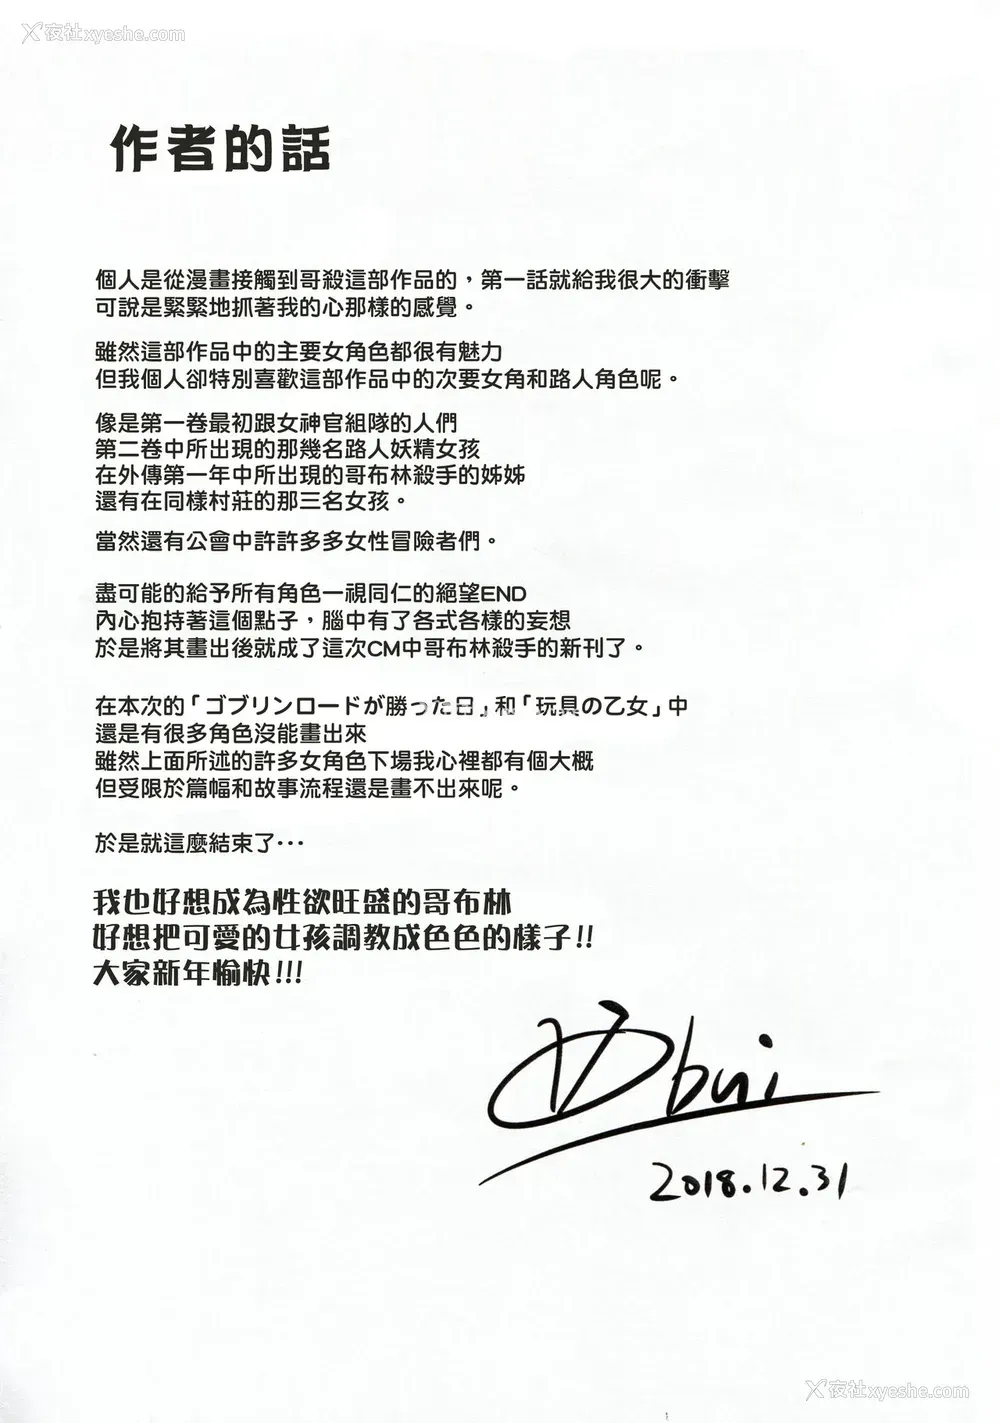 夜社xyeshe.com
作者的話
個人是從漫畫接觸到哥殺這部作品的，第一話就給我很大的衝擊
可說是緊緊地抓著我的心那樣的感覺。
雖然這部作品中的主要女角色都很有魅力
但我個人卻特別喜歡這部作品中的次要女角和路人角色呢。
像是第一卷最初跟女神官組隊的人們
第二卷中所出現的那幾名路人妖精女孩
在外傳第一年中所出現的哥布林殺手的姊姊
還有在同樣村莊的那三名女孩。
當然還有公會中許許多多女性冒險者們。
盡可能的給予所有角色一視同仁的絕望END
內心抱持著這個點子，腦中有了各式各樣的妄想
於是將其畫出後就成了這次CM中哥布林殺手的新刊了。
在本次的「ゴブリンロードが勝った日」和「玩具の乙女」中
還是有很多角色沒能畫出來
雖然上面所述的許多女角色下場我心裡都有個大概
但受限於篇幅和故事流程還是畫不出來呢。
於是就這麼結束了･･･
我也好想成為性欲旺盛的哥布林
好想把可愛的女孩調教成色色的樣子!!
大家新年愉快!!!
bui
2018.12.31
夜社xyeshe.com